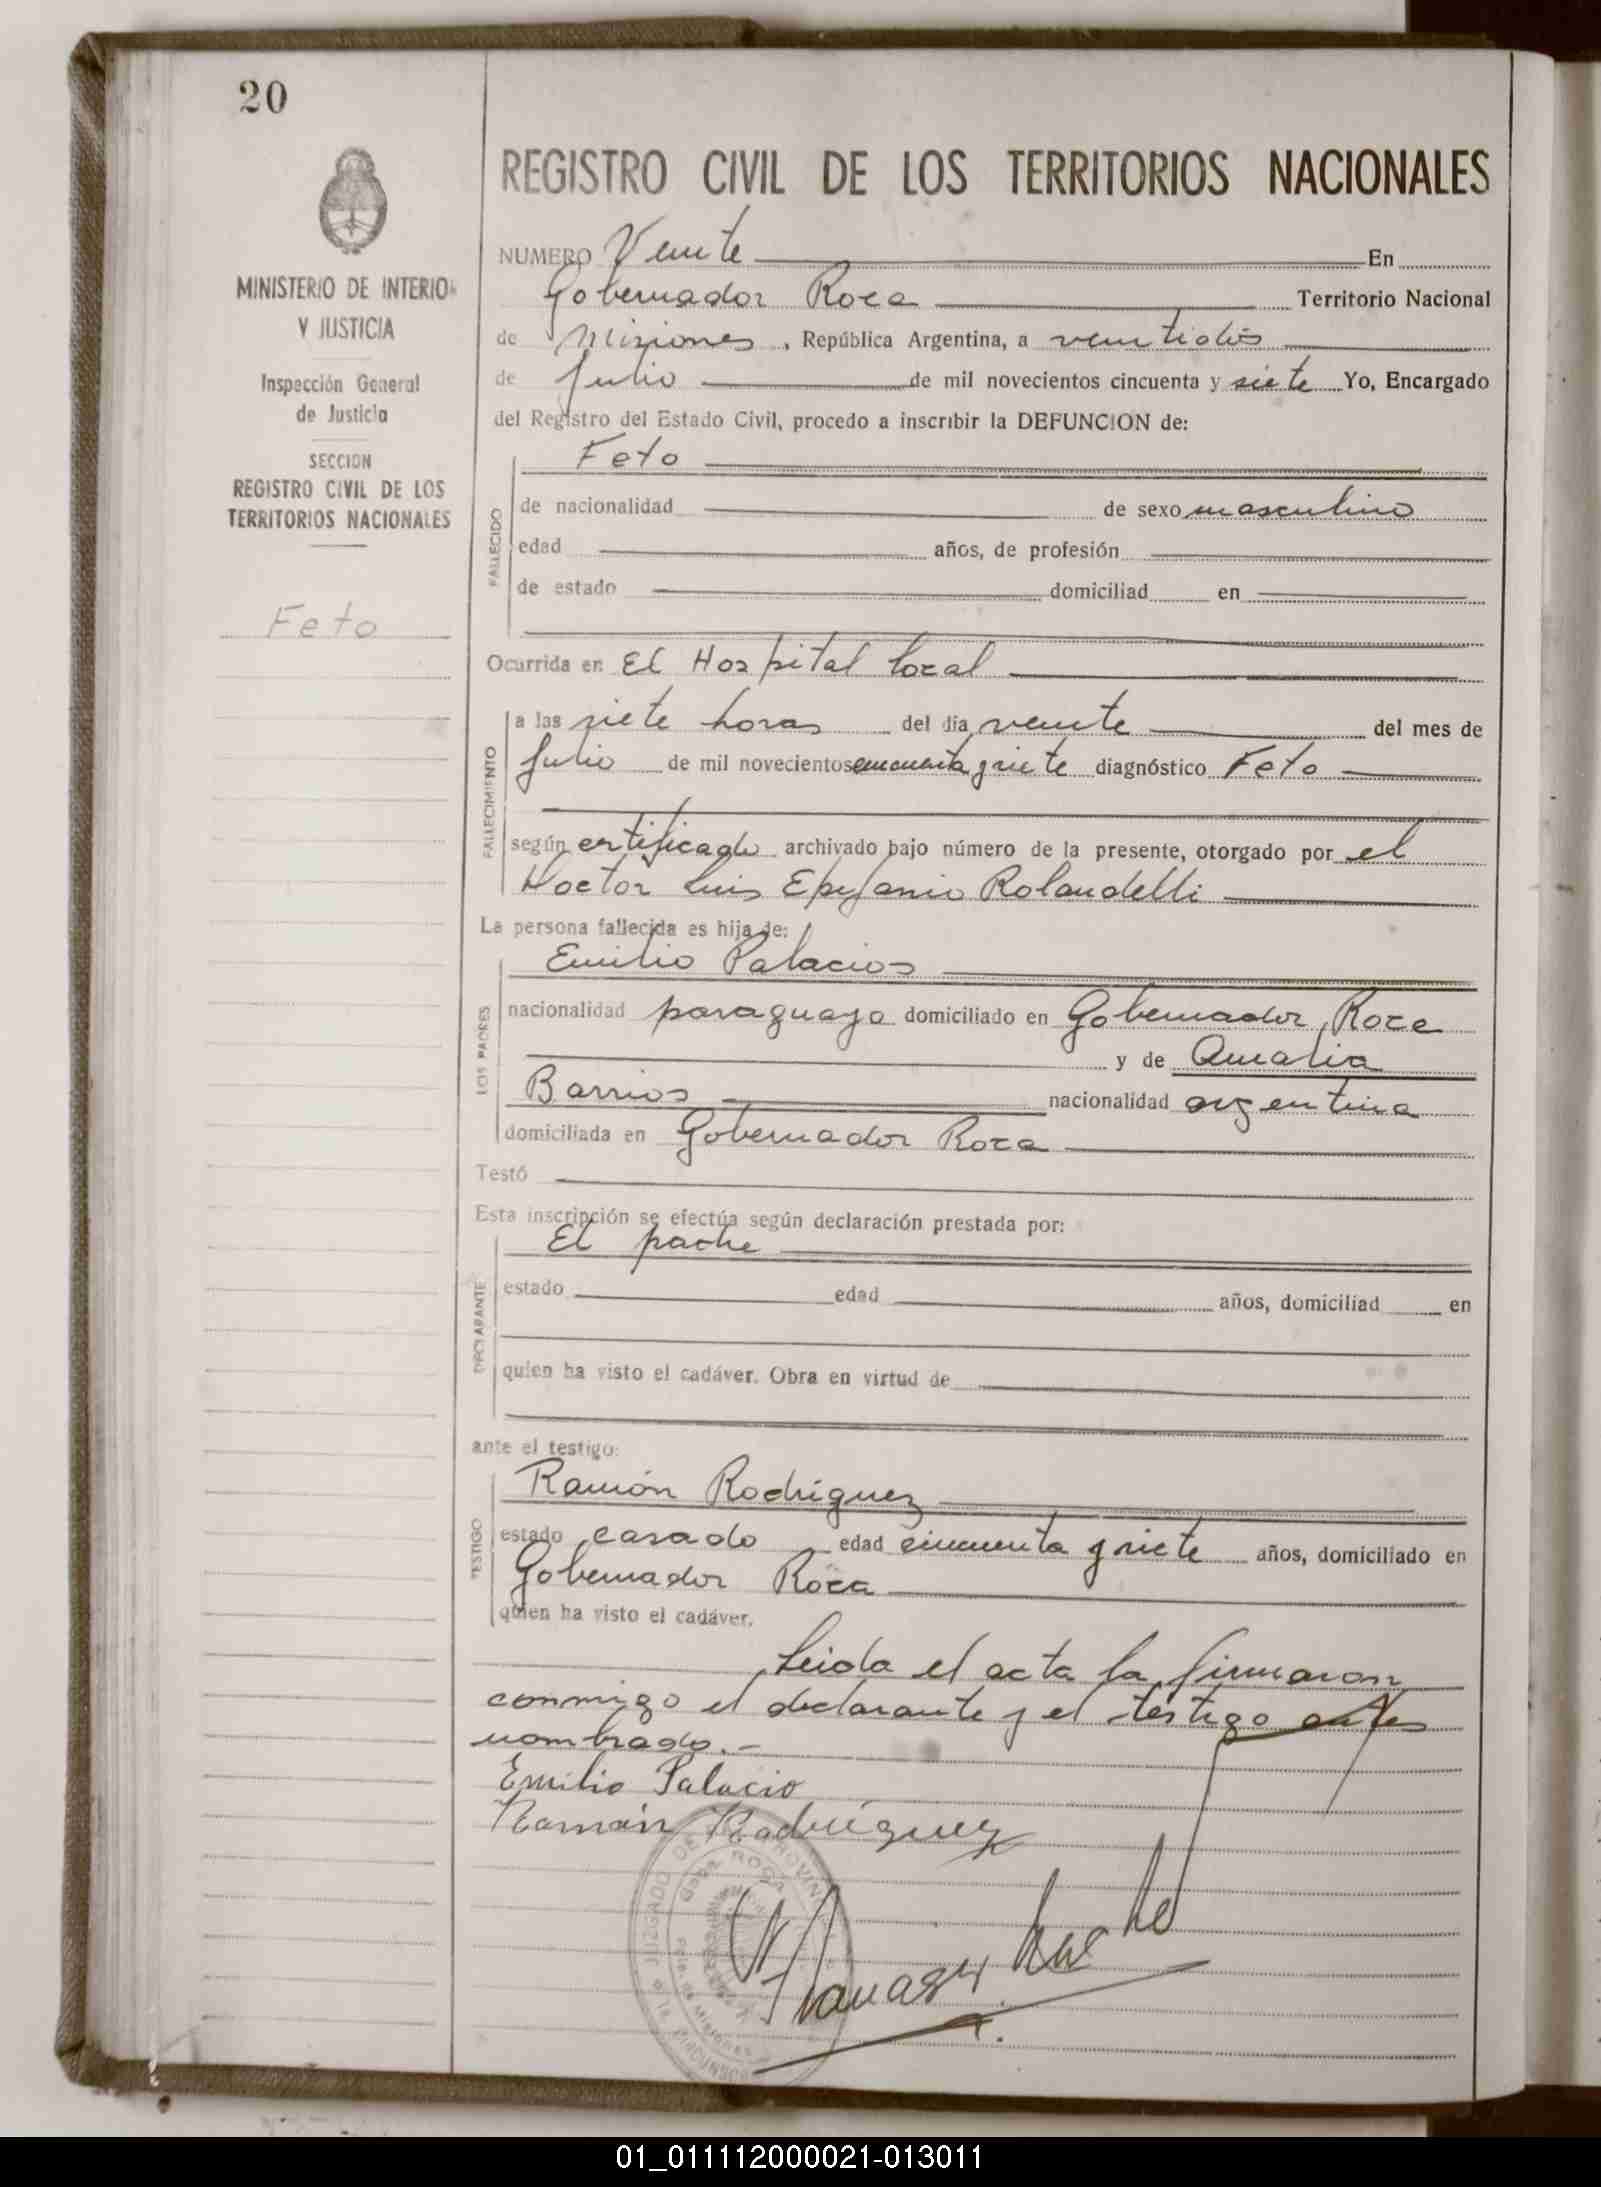 20
MINISTERIO DE INTERIOR
Y JUSTICIA
Inspección General
de Justicia
SECCION
REGISTRO CIVIL DE LOS
TERRITORIOS NACIONALES
Feto
REGISTRO CIVIL DE LOS TERRITORIOS NACIONALES
NUMERO Veinte En
Gobernador Roca Territorio Nacional
de Misiones, República Argentina, a veintidós
de Julio de mil novecientos cincuenta y siete Yo, Encargado
del Registro del Estado Civil, procedo a inscribir la DEFUNCION de:
Feto
FALLECIDO
de nacionalidad de sexo masculino
edad años, de profesión
de estado domiciliad en
Ocurrida en El Hospital local
FALLECIMIENTO
a las siete horas del día veinte del mes de
Julio de mil novecientos cincuenta y siete diagnóstico Feto
según certificado archivado bajo número de la presente, otorgado por el
Doctor Luis Epifanio Rolandelli
La persona fallecida es hija de:
LOS PADRES
Emilio Palacios
nacionalidad paraguaya domiciliado en Gobernador Roca
y de Amalia
Barrios nacionalidad argentina
domiciliada en Gobernador Roca
Testó
Esta inscripción se efectúa según declaración prestada por:
DECLARANTE
El padre
estado edad años, domiciliad en
quien ha visto el cadáver. Obra en virtud de
ante el testigo:
TESTIGO
Ramón Rodriguez
estado casado edad cincuenta y siete años, domiciliado en
Gobernador Roca
quien ha visto el cadáver.
Leida el acta la firmaron
conmigo el declarante y el testigo antes
nombrado.-
Emilio Palacio
Ramón Rodriguez
JUZGADO DE
Gobr. ROCA
01_011112000021-013011